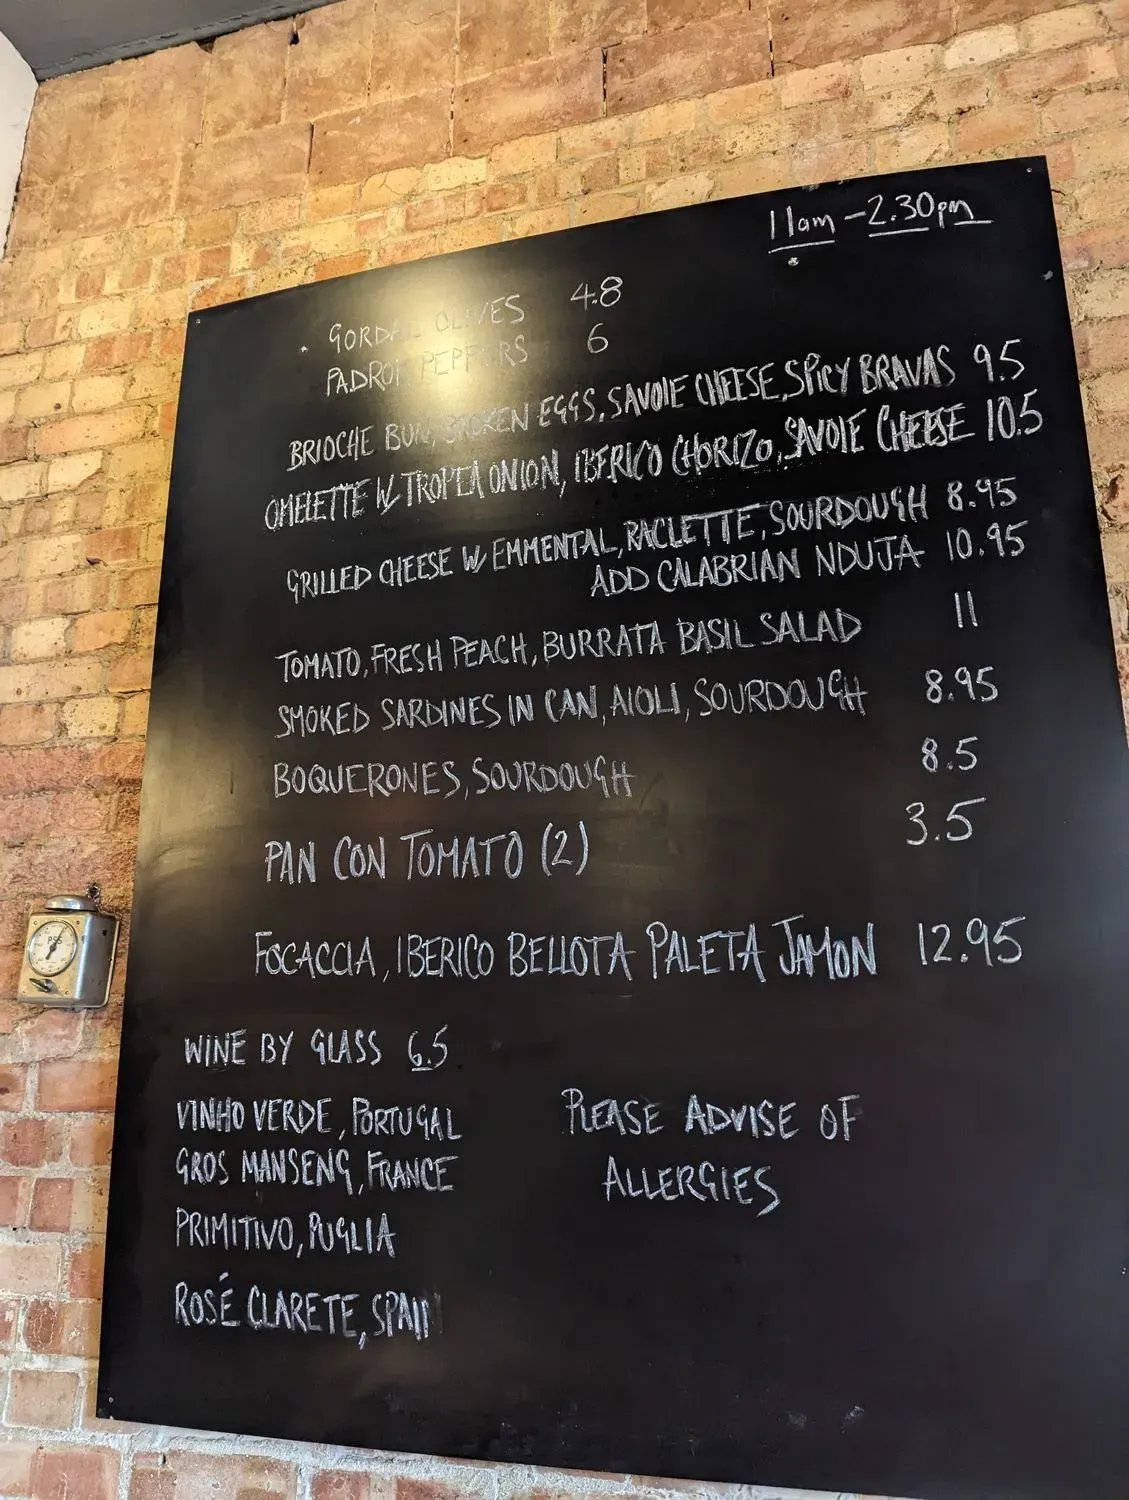 11am - 2.30pm
GORDAL OLIVES 4.8
PADRON PEPPERS 6
BRIOCHE BUN, BROKEN EGGS, SAVOIE CHEESE, SPICY BRAVAS 9.5
OMELETTE W/ TROPEA ONION, IBERICO CHORIZO, SAVOIE CHEESE 10.5
GRILLED CHEESE W/ EMMENTAL, RACLETTE, SOURDOUGH 8.95
ADD CALABRIAN NDUJA 10.95
TOMATO, FRESH PEACH, BURRATA BASIL SALAD 11
SMOKED SARDINES IN CAN, AIOLI, SOURDOUGH 8.95
BOQUERONES, SOURDOUGH 8.5
PAN CON TOMATO (2) 3.5
FOCACCIA, IBERICO BELLOTA PALETA JAMON 12.95
WINE BY GLASS 6.5
VINHO VERDE, PORTUGAL
GROS MANSENG, FRANCE
PRIMITIVO, PUGLIA
ROSÉ CLARETE, SPAIN
PLEASE ADVISE OF
ALLERGIES